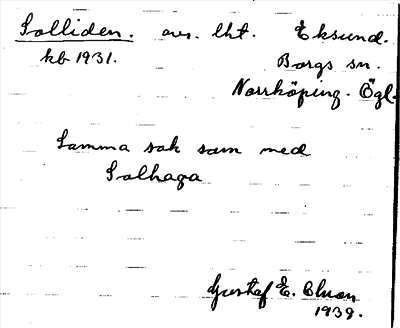 Solliden. avs. lht. Eksund.
kb 1931. Borgs sn.
Norrköping. Ögl.
Samma sak som med
Solhaga
Gustaf E. Clson
1939.